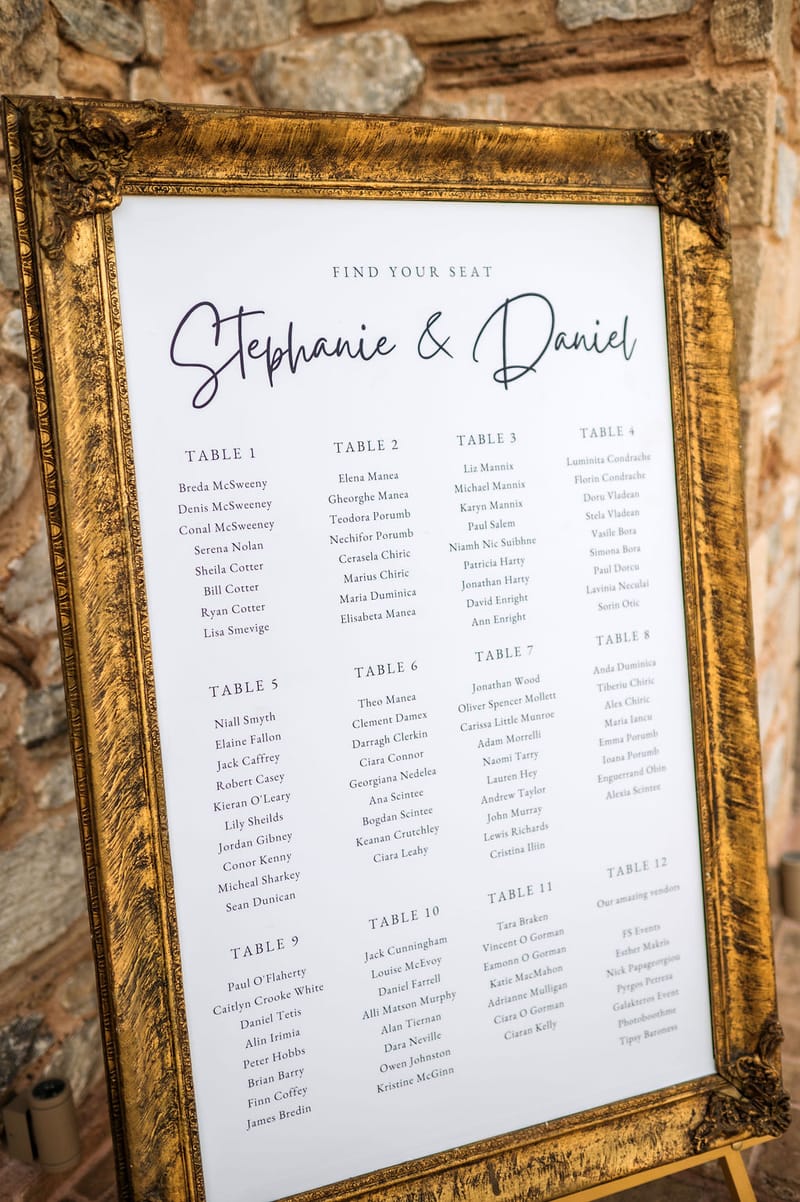 FIND YOUR SEAT
Stephanie & Daniel
TABLE 1
Breda McSweeny
Denis McSweeney
Conal McSweeney
Serena Nolan
Sheila Cotter
Bill Cotter
Ryan Cotter
Lisa Smevige
TABLE 2
Elena Manea
Gheorghe Manea
Teodora Porumb
Nechifor Porumb
Cerasela Chiric
Marius Chiric
Maria Duminica
Elisabeta Manea
TABLE 3
Liz Mannix
Michael Mannix
Karyn Mannix
Paul Salem
Niamh Nic Suibhne
Patricia Harty
Jonathan Harty
David Enright
Ann Enright
TABLE 4
Luminita Condrache
Florin Condrache
Doru Vladean
Stela Vladean
Vasile Bora
Simona Bora
Paul Dorcu
Lavinia Neculai
Sorin Otic
TABLE 5
Niall Smyth
Elaine Fallon
Jack Caffrey
Robert Casey
Kieran O'Leary
Lily Sheilds
Jordan Gibney
Conor Kenny
Micheal Sharkey
Sean Dunican
TABLE 6
Theo Manea
Clement Damex
Darragh Clerkin
Ciara Connor
Georgiana Nedelea
Ana Scintee
Bogdan Scintee
Keanan Crutchley
Ciara Leahy
TABLE 7
Jonathan Wood
Oliver Spencer Mollett
Carissa Little Munroe
Adam Morrelli
Naomi Tarry
Lauren Hey
Andrew Taylor
John Murray
Lewis Richards
Cristina Iliin
TABLE 8
Anda Duminica
Tiberiu Chiric
Alex Chiric
Maria Iancu
Emma Porumb
Ioana Porumb
Enguerrand Obin
Alexia Scintee
TABLE 9
Paul O'Flaherty
Caitlyn Crooke White
Daniel Tetis
Alin Irimia
Peter Hobbs
Brian Barry
Finn Coffey
James Bredin
TABLE 10
Jack Cunningham
Louise McEvoy
Daniel Farrell
Alli Matson Murphy
Alan Tiernan
Dara Neville
Owen Johnston
Kristine McGinn
TABLE 11
Tara Braken
Vincent O Gorman
Eamonn O Gorman
Katie MacMahon
Adrianne Mulligan
Ciara O Gorman
Ciaran Kelly
TABLE 12
Our amazing vendors
FS Events
Esther Makris
Nick Papageorgiou
Pyrgos Petreza
Galakteros Event
Photoboothme
Tipsy Baroness